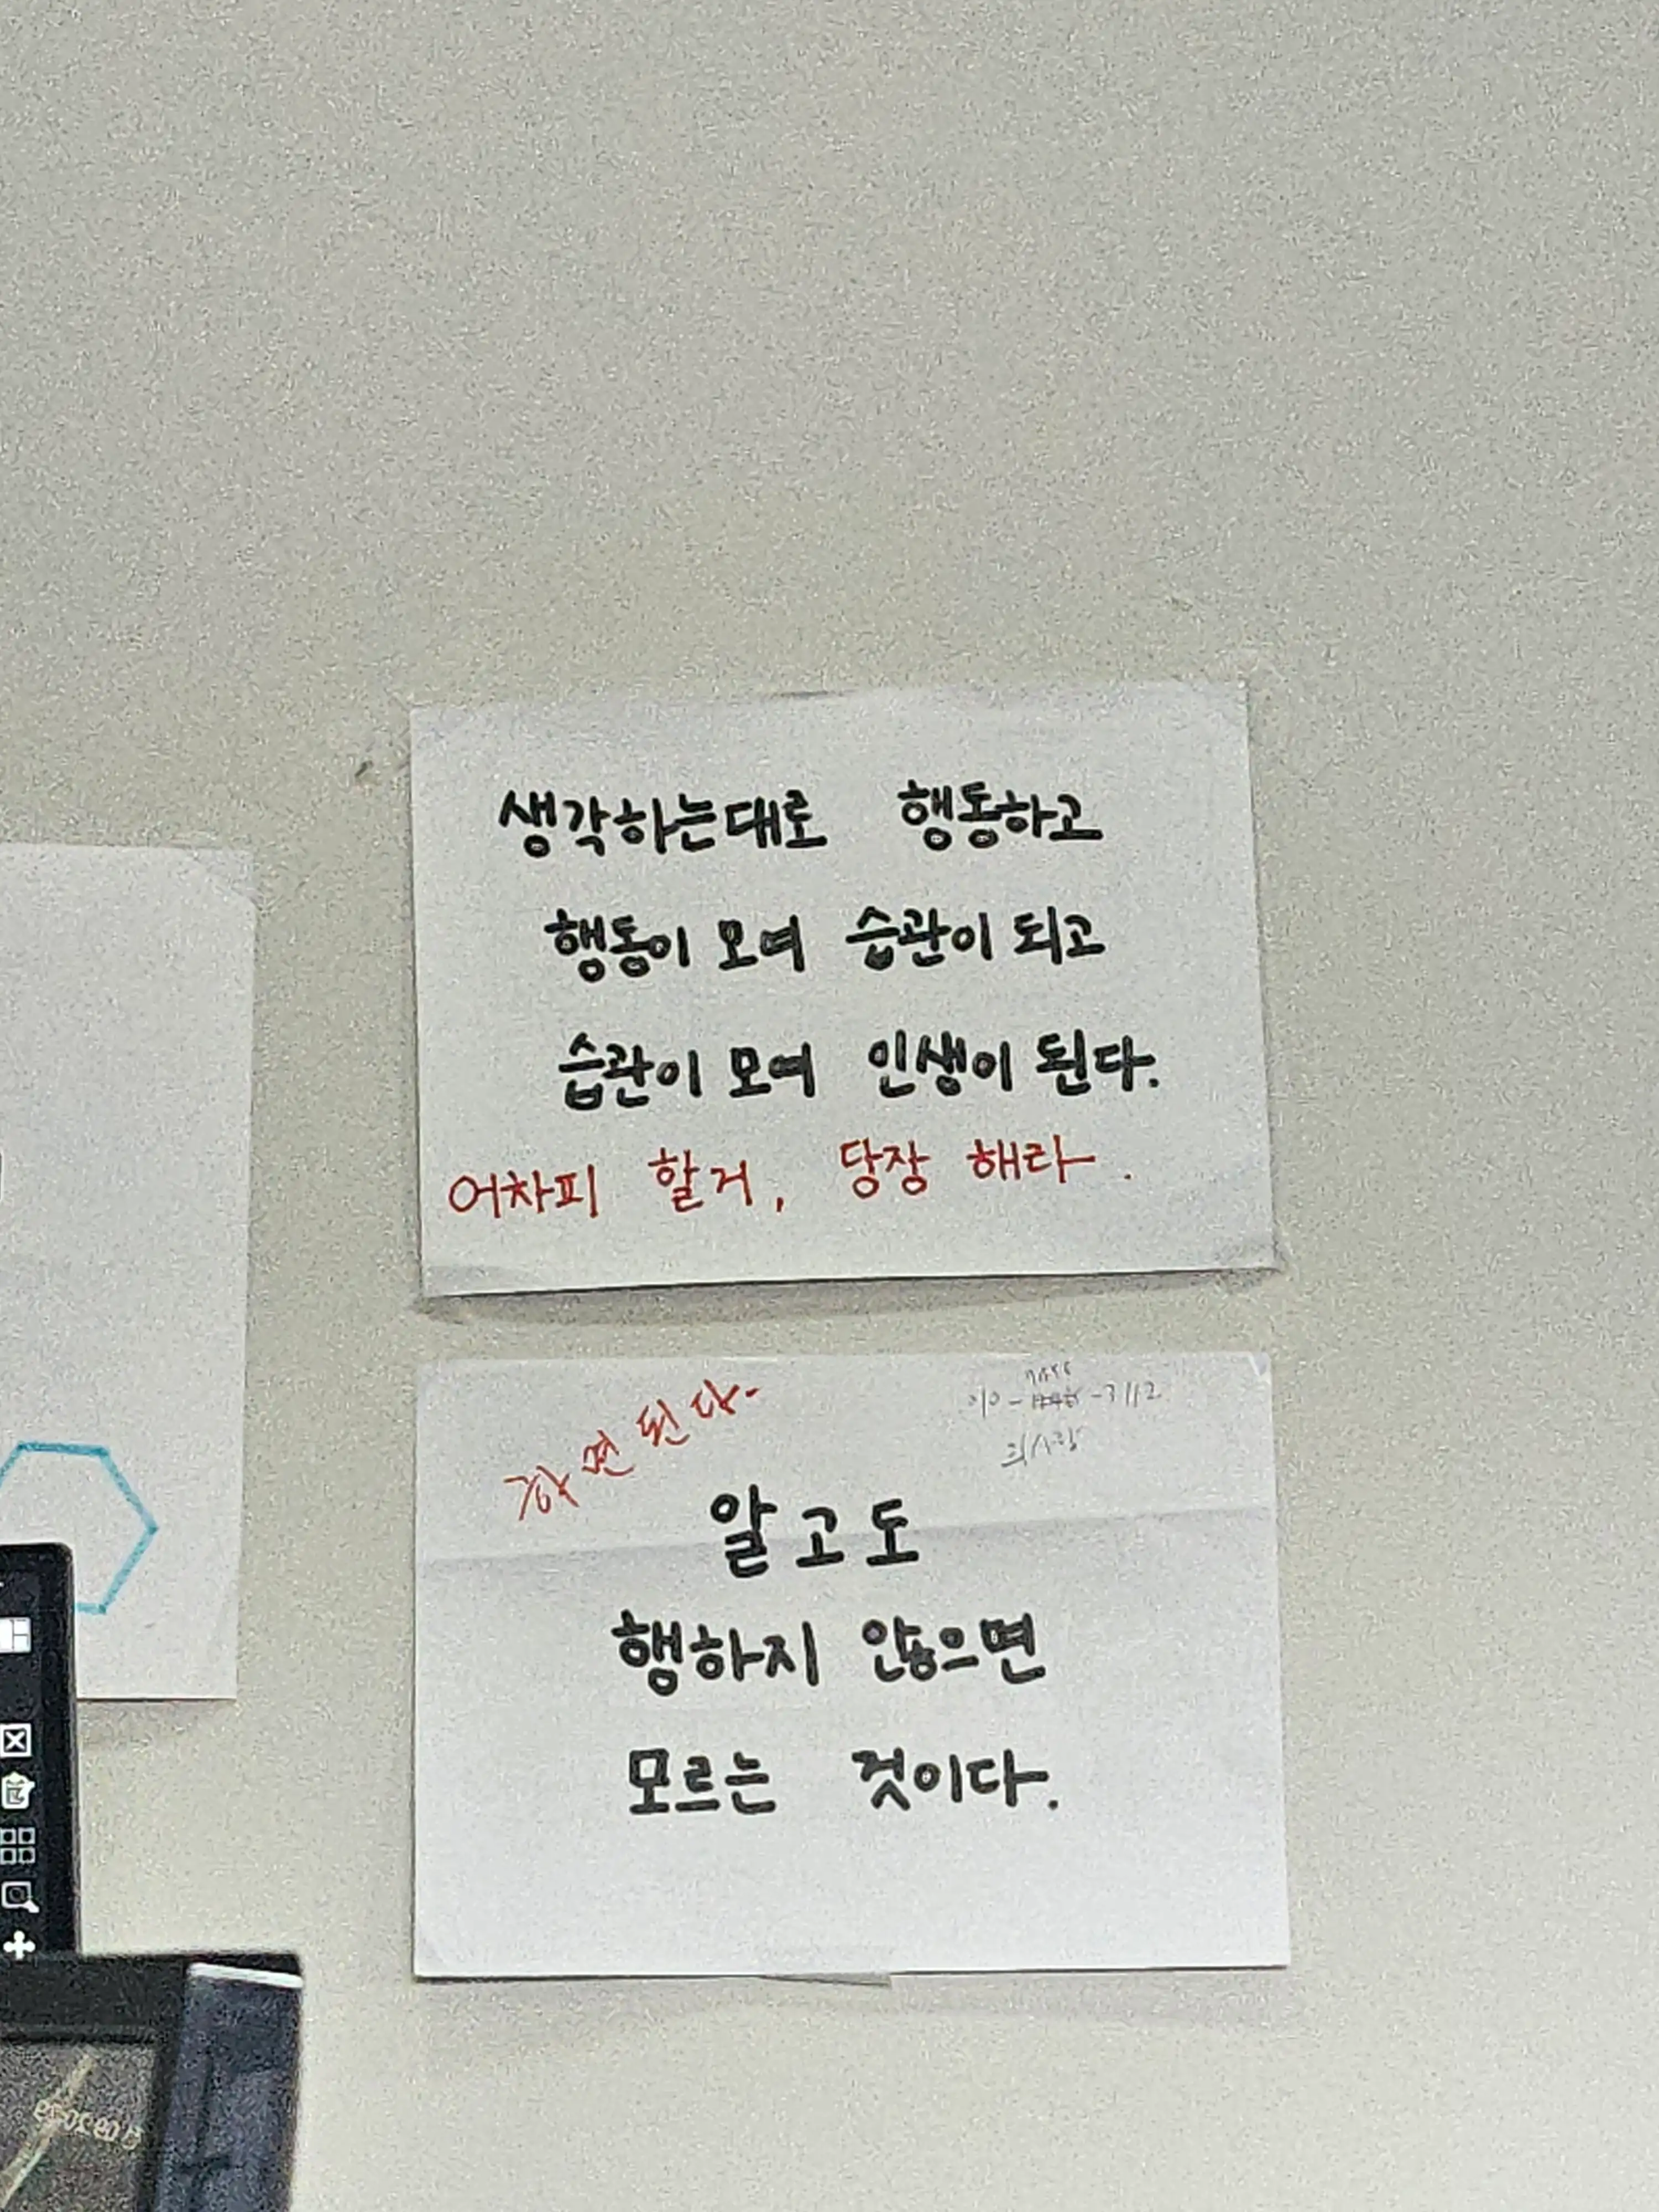 생각하는대로 행동하고
행동이 모여 습관이 되고
습관이 모여 인생이 된다.
어차피 할거, 당장 해라.
하면 된다.
알고도
행하지 않으면
모르는 것이다.